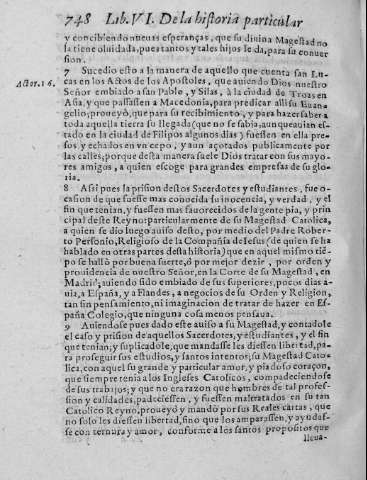 748 Lib. VI. De la historia particular
y concibiendo nueuas esperanças, que su diuina Magestad no
la tiene oluidada, pues tantos y tales hijos le da, para su conuer
sion.
7 Sucedio esto a la manera de aquello que cuenta san Lu-
Actor. 16.
cas en los Actos de los Apostoles, que auiendo Dios nuestro
Señor embiado a san Pablo, y Silas, à la ciudad de Troas en
Asia, y que passassen a Macedonia, para predicar alli su Euan-
gelio, proueyò, que para su recibimiento, y para hazer saber a
toda aquella tierra su llegada (que no se sabia, aunque auian es-
tado en la ciudad de Filipos algunos dias) fuessen en ella pre-
sos, y echados en vn cepo, y aun açotados publicamente por
las calles, porque desta manera suele Dios tratar con sus mayo-
res amigos, a quien escoge para grandes empresas de su glo-
ria.
8 Assi pues la prision destos Sacerdotes y estudiantes, fue o-
casion de que fuesse mas conocida su inocencia, y verdad, y el
fin que tenian, y fuessen mas fauorecidos de la gente pia, y prin
cipal deste Reyno: particularmente de su Magestad Catolica,
a quien se dio luego auiso desto, por medio del Padre Rober-
to Personio, Religioso de la Compañia de Iesus (de quien se ha
hablado en otras partes desta historia) que en aquel mismo tiē-
po se hallò por buena suerte, ò por mejor dezir, por orden y
prouidencia de nuestro Señor, en la Corte de su Magestad, en
Madrid, auiendo sido embiado de sus superiores, pocos dias a-
uia, a España, y a Flandes, a negocios de su Orden y Religion,
tan sin pensamiento, ni imaginacion de tratar de hazer en Es-
paña Colegio, que ninguna cosa menos pensaua.
9 Auiendose pues dado este auiso a su Magestad, y contadole
el caso y prision de aquellos Sacerdotes, y estudiantes, y el fin
que tenian, y suplicadole, que mandasse les diessen libertad, pa-
ra proseguir sus estudios, y santos intentos; su Magestad Cato-
lica, con aquel su grande y particular amor, y piadoso coraçon,
que siempre tenia a los Ingleses Catolicos, compadeciendose
de sus trabajos, y que no era razon que hombres de tal profes-
sion y calidades, padeciessen, y fuessen maltratados en su tan
Catolico Reyno, proueyò y mandò por sus Reales cartas, que
no solo les diessen libertad, sino que los amparassen, y ayudas-
se con ternura y amor, conforme a los santos propositos que
lleua-